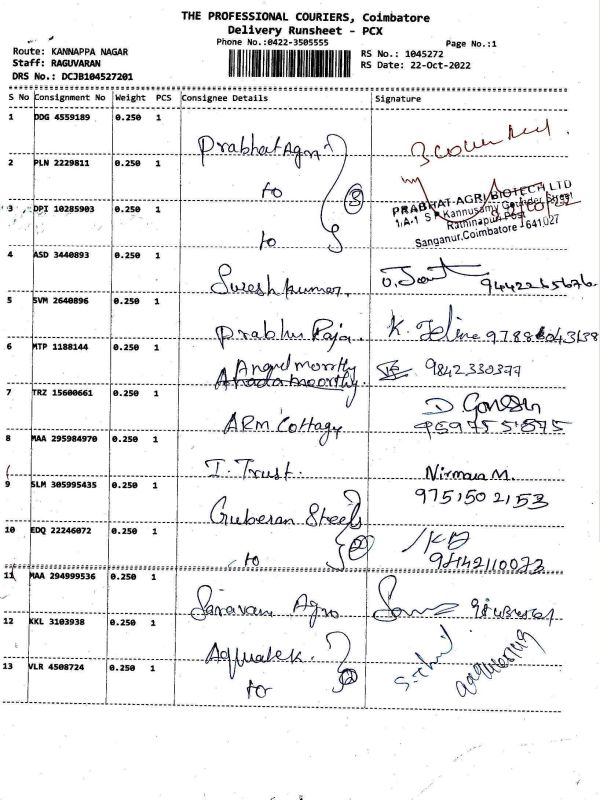 THE PROFESSIONAL COURIERS, Coimbatore
Delivery Runsheet - PCX
Phone No.:0422-3505555
Page No.:1
Route: KANNAPPA NAGAR
RS No.: 1045272
Staff: RAGUVARAN
RS Date: 22-Oct-2022
DRS No.: DCJB104527201
S No Consignment No Weight PCS Consignee Details Signature
1 DDG 4559189 0.250 1
Prabhat Agri
2 PLN 2229811 0.250 1
to 3
PRABHAT AGRI BIOTECH LTD
1/A-1 S P Kannusamy Gounder Street
Rathinapuri Post
Sanganur, Coimbatore - 641 027
3 DPI 10285903 0.250 1
to
4 ASD 3440893 0.250 1
Suresh kumar.
5 SVM 2640896 0.250 1
Prabhu Raja. K.
6 MTP 1188144 0.250 1
Angul moorthy 9842330377
7 TRZ 15600661 0.250 1
ARM Cottagy
8 MAA 295984970 0.250 1
I. Trust. Nirmala M.
9751502153
9 SLM 305995435 0.250 1
Guberan Steels
10 EDQ 22246072 0.250 1
to 2
11 MAA 294999536 0.250 1
Saravana Agro
12 KKL 3103938 0.250 1
Aquatek.
13 VLR 4508724 0.250 1
to 2